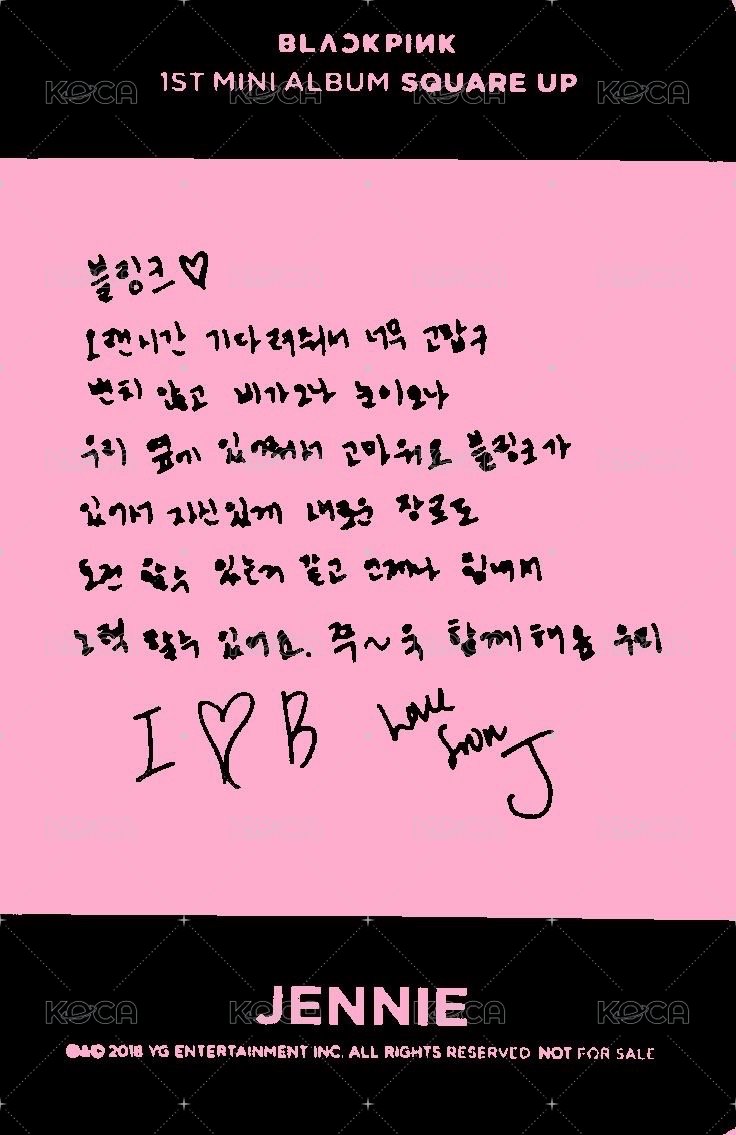 BLACKPINK
1ST MINI ALBUM SQUARE UP
블링크♡
오랜시간 기다려줘서 너무 고맙구
변치 않고 비가오나 눈이오나
우리 옆에 있어줘서 고마워요 블링크가
있어서 자신있게 새로운 장르도
도전 할수 있는거 같고 언제나 힘내서
노력 할수 있어요. 쭈~욱 함께해용 우리
I ♡ B Love from J
JENNIE
2018 YG ENTERTAINMENT INC. ALL RIGHTS RESERVED NOT FOR SALE
KOCA